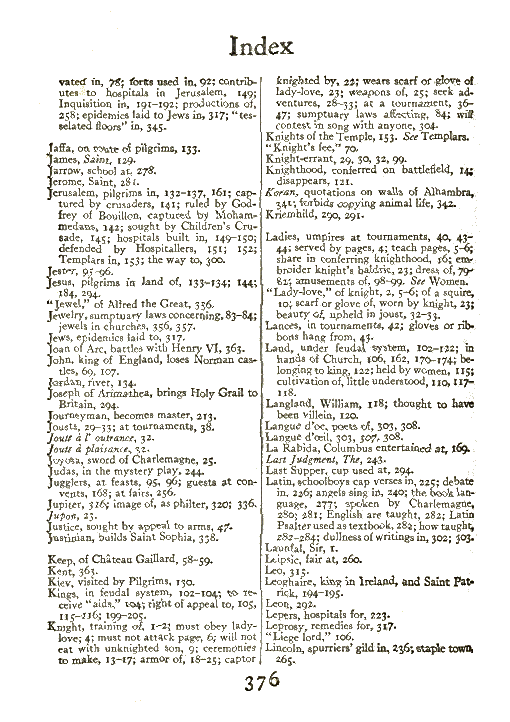 Index
vated in, 78; forts used in, 92; contrib-
utes to hospitals in Jerusalem, 149;
Inquisition in, 191-192; productions of,
258; epidemics laid to Jews in, 317; "tes-
selated floors" in, 345.
Jaffa, on route of pilgrims, 133.
James, Saint, 129.
Jarrow, school at, 278.
Jerome, Saint, 281.
Jerusalem, pilgrims in, 132-137, 161; cap-
tured by crusaders, 141; ruled by God-
frey of Bouillon, captured by Moham-
medans, 142; sought by Children's Cru-
sade, 145; hospitals built in, 149-150;
defended by Hospitallers, 151; 152;
Templars in, 153; the way to, 300.
Jester, 95-96.
Jesus, pilgrims in land of, 133-134; 144;
184, 294.
"Jewel," of Alfred the Great, 336.
Jewelry, sumptuary laws concerning, 83-84;
jewels in churches, 356, 357.
Jews, epidemics laid to, 317.
Joan of Arc, battles with Henry VI, 363.
John, king of England, loses Norman cas-
tles, 69, 107.
Jordan, river, 134.
Joseph of Arimathea, brings Holy Grail to
Britain, 294.
Journeyman, becomes master, 213.
Jousts, 29-33; at tournaments, 38.
Joute à l' outrance, 32.
Joute à plaisance, 32.
Joyosa, sword of Charlemagne, 25.
Judas, in the mystery play, 244.
Jugglers, at feasts, 95, 96; guests at con-
vents, 168; at fairs, 256.
Jupiter, 316; image of, as philter, 320; 336.
Jupon, 23.
Justice, sought by appeal to arms, 47.
Justinian, builds Saint Sophia, 338.
Keep, of Château Gaillard, 58-59.
Kent, 363.
Kiev, visited by Pilgrims, 130.
Kings, in feudal system, 102-104; to re-
ceive "aids," 104; right of appeal to, 105,
115-116; 199-205.
Knight, training of, 1-2; must obey lady-
love; 4; must not attack page, 6; will not
eat with unknighted son, 9; ceremonies
to make, 13-17; armor of, 18-25; captor
knighted by, 22; wears scarf or glove of
lady-love, 23; weapons of, 25; seek ad-
ventures, 28-33; at a tournament, 36-
47; sumptuary laws affecting, 84; will
contest in song with anyone, 304.
Knights of the Temple, 153. See Templars.
"Knight's fee," 70.
Knight-errant, 29, 30, 32, 99.
Knighthood, conferred on battlefield, 14;
disappears, 121.
Koran, quotations on walls of Alhambra,
341; forbids copying animal life, 342.
Kriemhild, 290, 291.
Ladies, umpires at tournaments, 40, 43-
44; served by pages, 4; teach pages, 5-6;
share in conferring knighthood, 16; em-
broider knight's baldric, 23; dress of, 79-
82; amusements of, 98-99. See Women.
"Lady-love," of knight, 2, 5-6; of a squire,
10; scarf or glove of, worn by knight, 23;
beauty of, upheld in joust, 32-33.
Lances, in tournaments, 42; gloves or rib-
bons hang from, 43.
Land, under feudal system, 102-122; in
hands of Church, 106, 162, 170-174; be-
longing to king, 122; held by women, 115;
cultivation of, little understood, 110, 117-
118.
Langland, William, 118; thought to have
been villein, 120.
Langue d'oc, poets of, 303, 308.
Langue d'œil, 303, 307, 308.
La Rabida, Columbus entertained at, 169.
Last Judgment, The, 243.
Last Supper, cup used at, 294.
Latin, schoolboys cap verses in, 225; debate
in, 226; angels sing in, 240; the book lan-
guage, 277; spoken by Charlemagne,
280; 281; English are taught, 282; Latin
Psalter used as textbook, 282; how taught,
282-284; dullness of writings in, 302; 303.
Launfal, Sir, 1.
Leipsic, fair at, 260.
Leo, 315.
Leoghaire, king in Ireland, and Saint Pat-
rick, 194-195.
Leon, 292.
Lepers, hospitals for, 223.
Leprosy, remedies for, 317.
"Liege lord," 106.
Lincoln, spurriers' gild in, 236; staple town,
265.
376